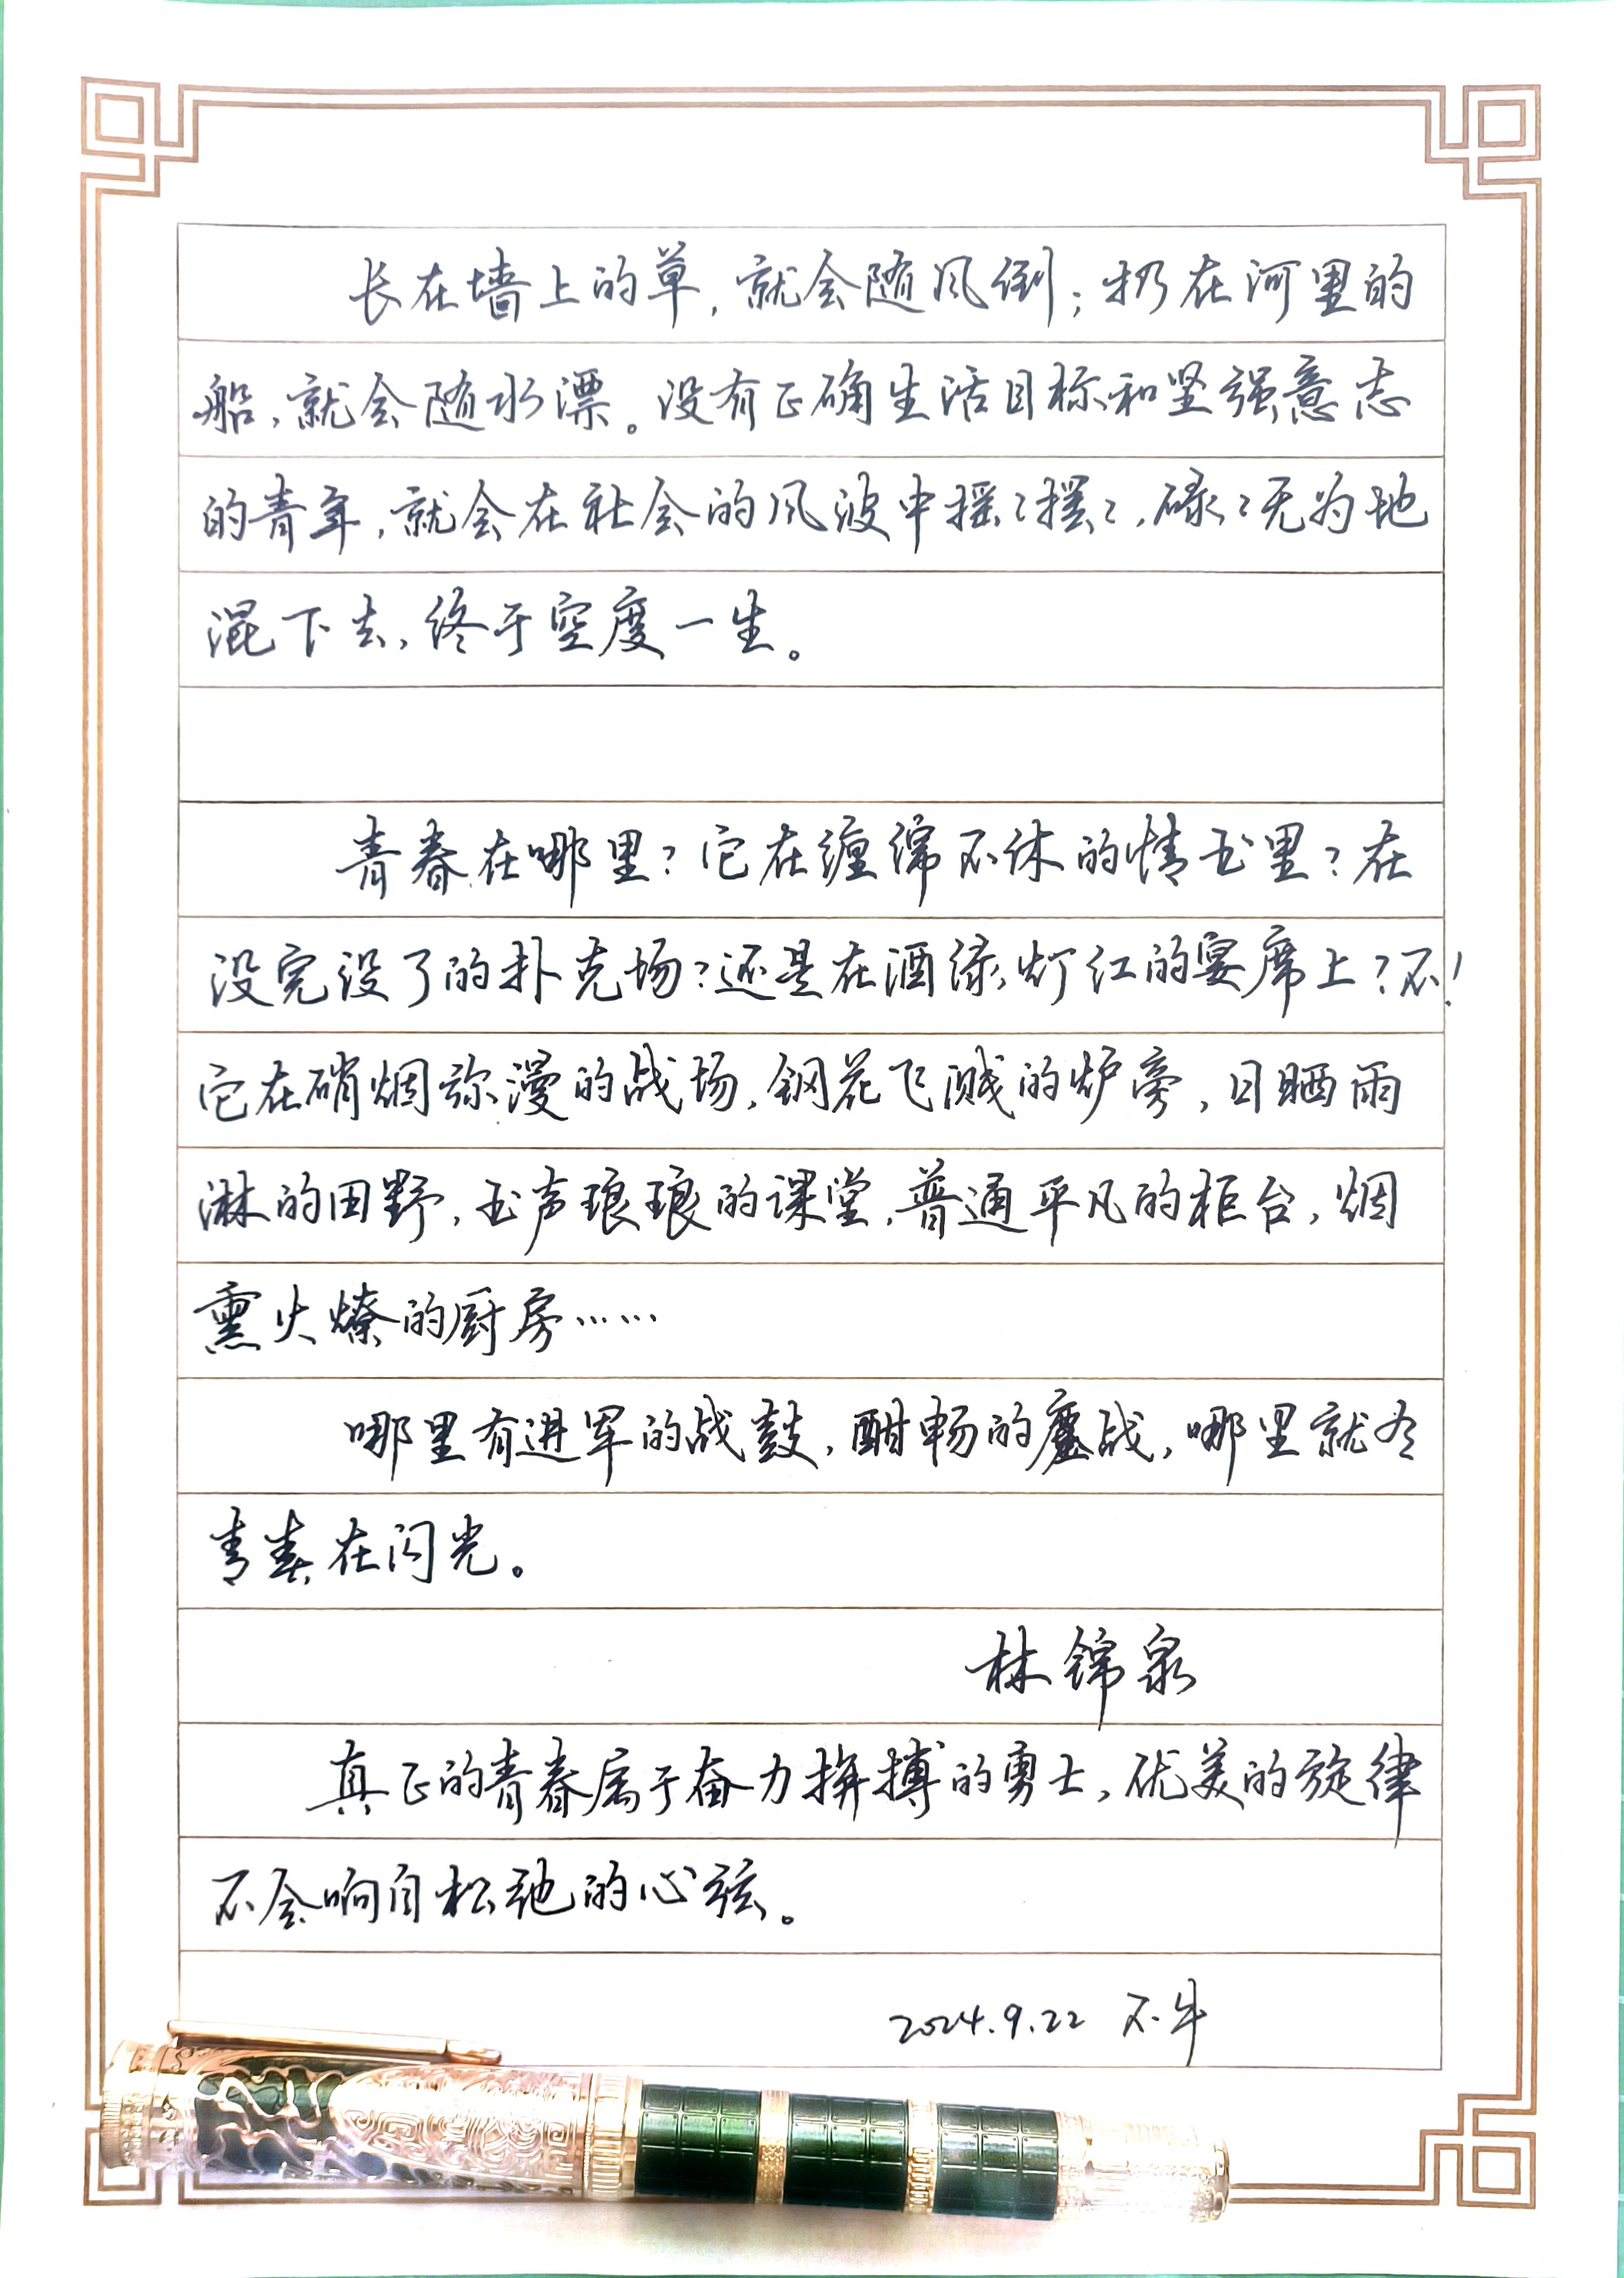 长在墙上的草,就会随风倒;扔在河里的
船,就会随水漂。没有正确生活目标和坚强意志
的青年,就会在社会的风波中摇々摆々,碌々无为地
混下去,终于空度一生。
青春在哪里?它在缠绵不休的情书里?在
没完没了的扑克场?还是在酒绿灯红的宴席上?不!
它在硝烟弥漫的战场,钢花飞溅的炉旁,日晒雨
淋的田野,书声琅琅的课堂,普通平凡的柜台,烟
熏火燎的厨房……
哪里有进军的战鼓,酣畅的鏖战,哪里就有
青春在闪光。
林锦泉
真正的青春属于奋力拚搏的勇士,优美的旋律
不会响自松弛的心弦。
2024.9.22 不牛